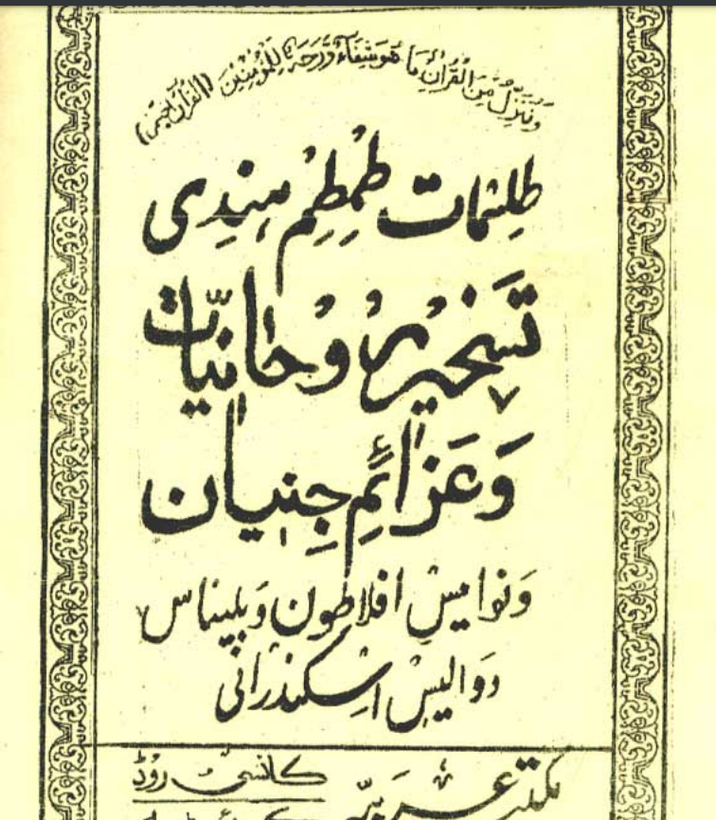 وَنُنَزِّلُ مِنَ الْقُرْآنِ مَا هُوَ شِفَآءٌ وَرَحْمَةٌ لِلْمُؤْمِنِيْنَ (القرآن
طلسمات طمطم ہندی
تسخیر روحانیّات
وَعَزَائمِ جِنیان
وَنوامیسِ افلاطون وَبلیناس
دوالیس اسکندرانی
مکتبہ عربیہ
کانسی روڈ